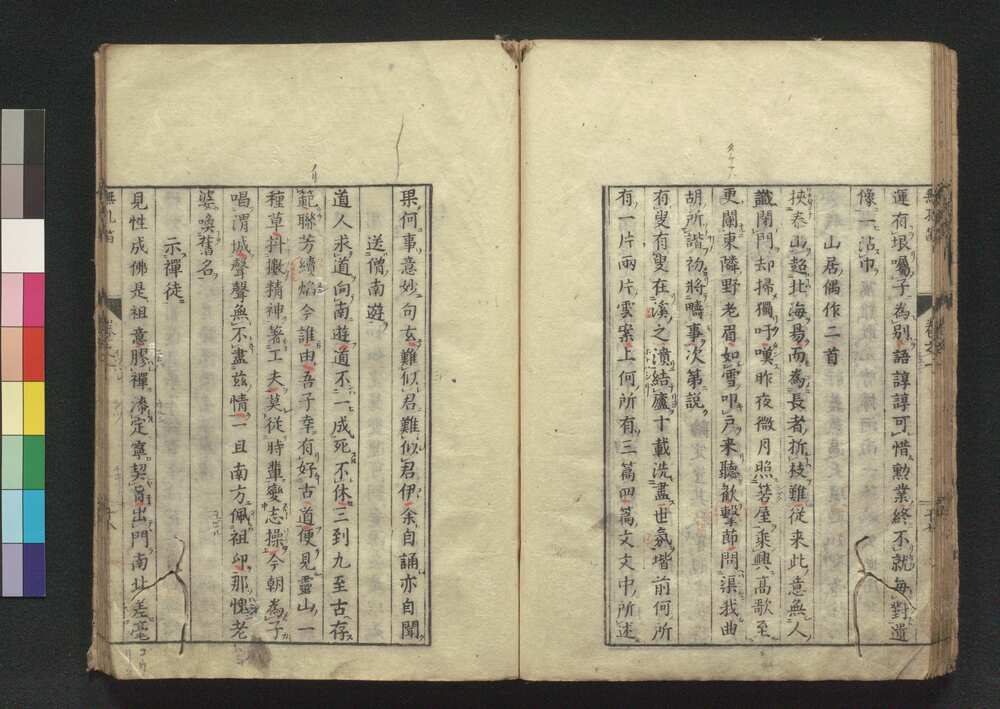 運有垠囑子為別語諄諄可惜勲業終不就毎對遺
像一沾巾
山居偶作二首
挾泰山超北海易而為長者折枝難從来此意無人
識閉門却掃獨吁嘆昨夜微月照茖屋乘興高歌至
更闌東隣野老眉如雪叩戸来聽歓撃節問渠我曲
胡所諧初將疇事次第説
有叟有叟在溪之濆結廬十載洗盡世氛堦前何所
有一片兩片雲案上何所有三篇四篇文文中所述
果何事意妙句玄難似君難似君伊余自誦亦自聞
送僧南遊
道人求道向南遊道不一成死不休三到九至古存
範聯芳續焰今誰由吾子幸有好古道便見靈山一
種草抖擻精神著工夫莫従時輩變志操今朝為子
唱渭城聲聲無不盡兹情一旦南方佩祖印那愧老
婆喚舊名
示禪徒
見性成佛是祖意膠禪漆定寧契旨出門南北差毫